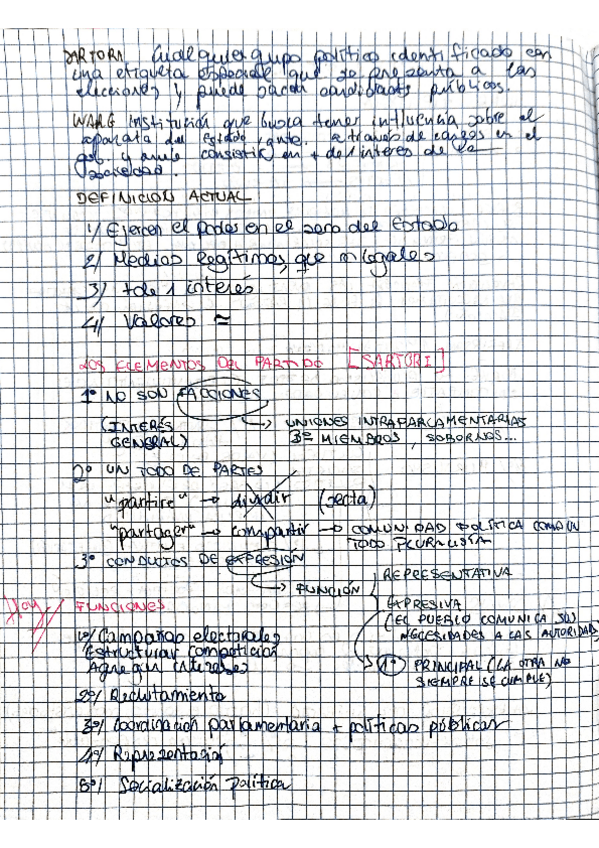 SARTORI Cualquier grupo político identificado con
una etiqueta especial que se presenta a las
elecciones y puede sacar candidatos públicos.
WARE Institución que busca tener influencia sobre el
aparato del Estado, a través de cargos en el
gob. y consistir en + de 1 interés de la
sociedad.
DEFINICION ACTUAL
1) Ejercen el poder en el seno del Estado
2) Medios legítimos, que
3) + de 1 interés
4) Valores ≃
LOS ELEMENTOS DEL PARTIDO [SARTORI]
1º NO SON FACCIONES
(INTERÉS GENERAL)
→ UNIONES INTRAPARLAMENTARIAS
MIEMBROS, SOBORNOS...
2º UN TODO DE PARTES
"partire" → dividir (secta)
"partager" → compartir → COMUNIDAD POLÍTICA COMO UN
TODO PLURALISTA
3º CONDUCTOS DE EXPRESIÓN
→ FUNCIÓN
REPRESENTATIVA
EXPRESIVA
(EL PUEBLO COMUNICA SUS
NECESIDADES A LAS AUTORIDAD)
1º PRINCIPAL (LA OTRA NO
SIEMPRE SE CUMPLE)
Hoy FUNCIONES
1º) Campañas electorales
Estructurar competición
Agregar intereses
2º) Reclutamiento
3º) Coordinación parlamentaria + políticas públicas
4º) Representación
5º) Socialización política